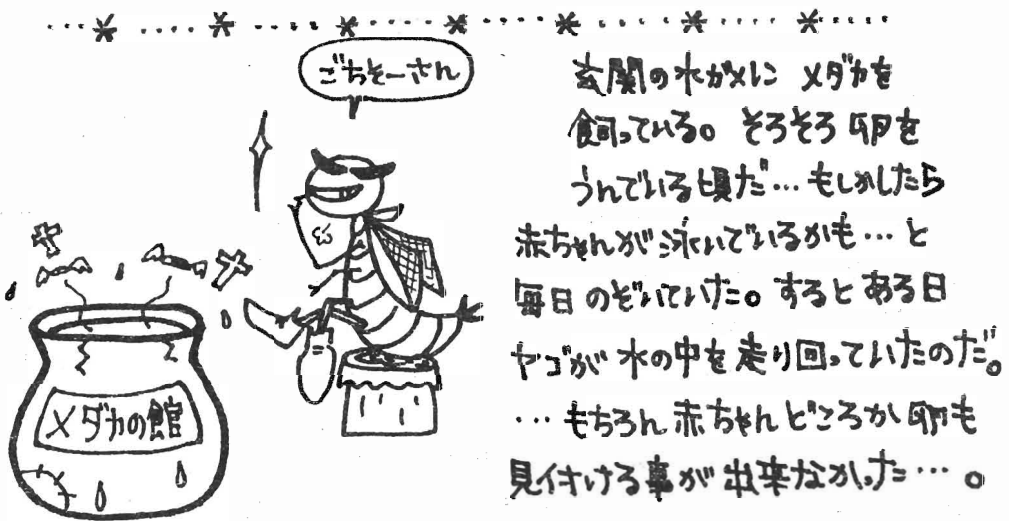 ごちそーさん
メダカの館
玄関の水がメに メダカを
飼っている。そろそろ卵を
うんでいる頃だ…もしかしたら
赤ちゃんが泳いでいるかも…と
毎日のぞいていた。するとある日
ヤゴが水の中を走り回っていたのだ。
…もちろん赤ちゃんどころか卵も
見付ける事が出来なかった…。